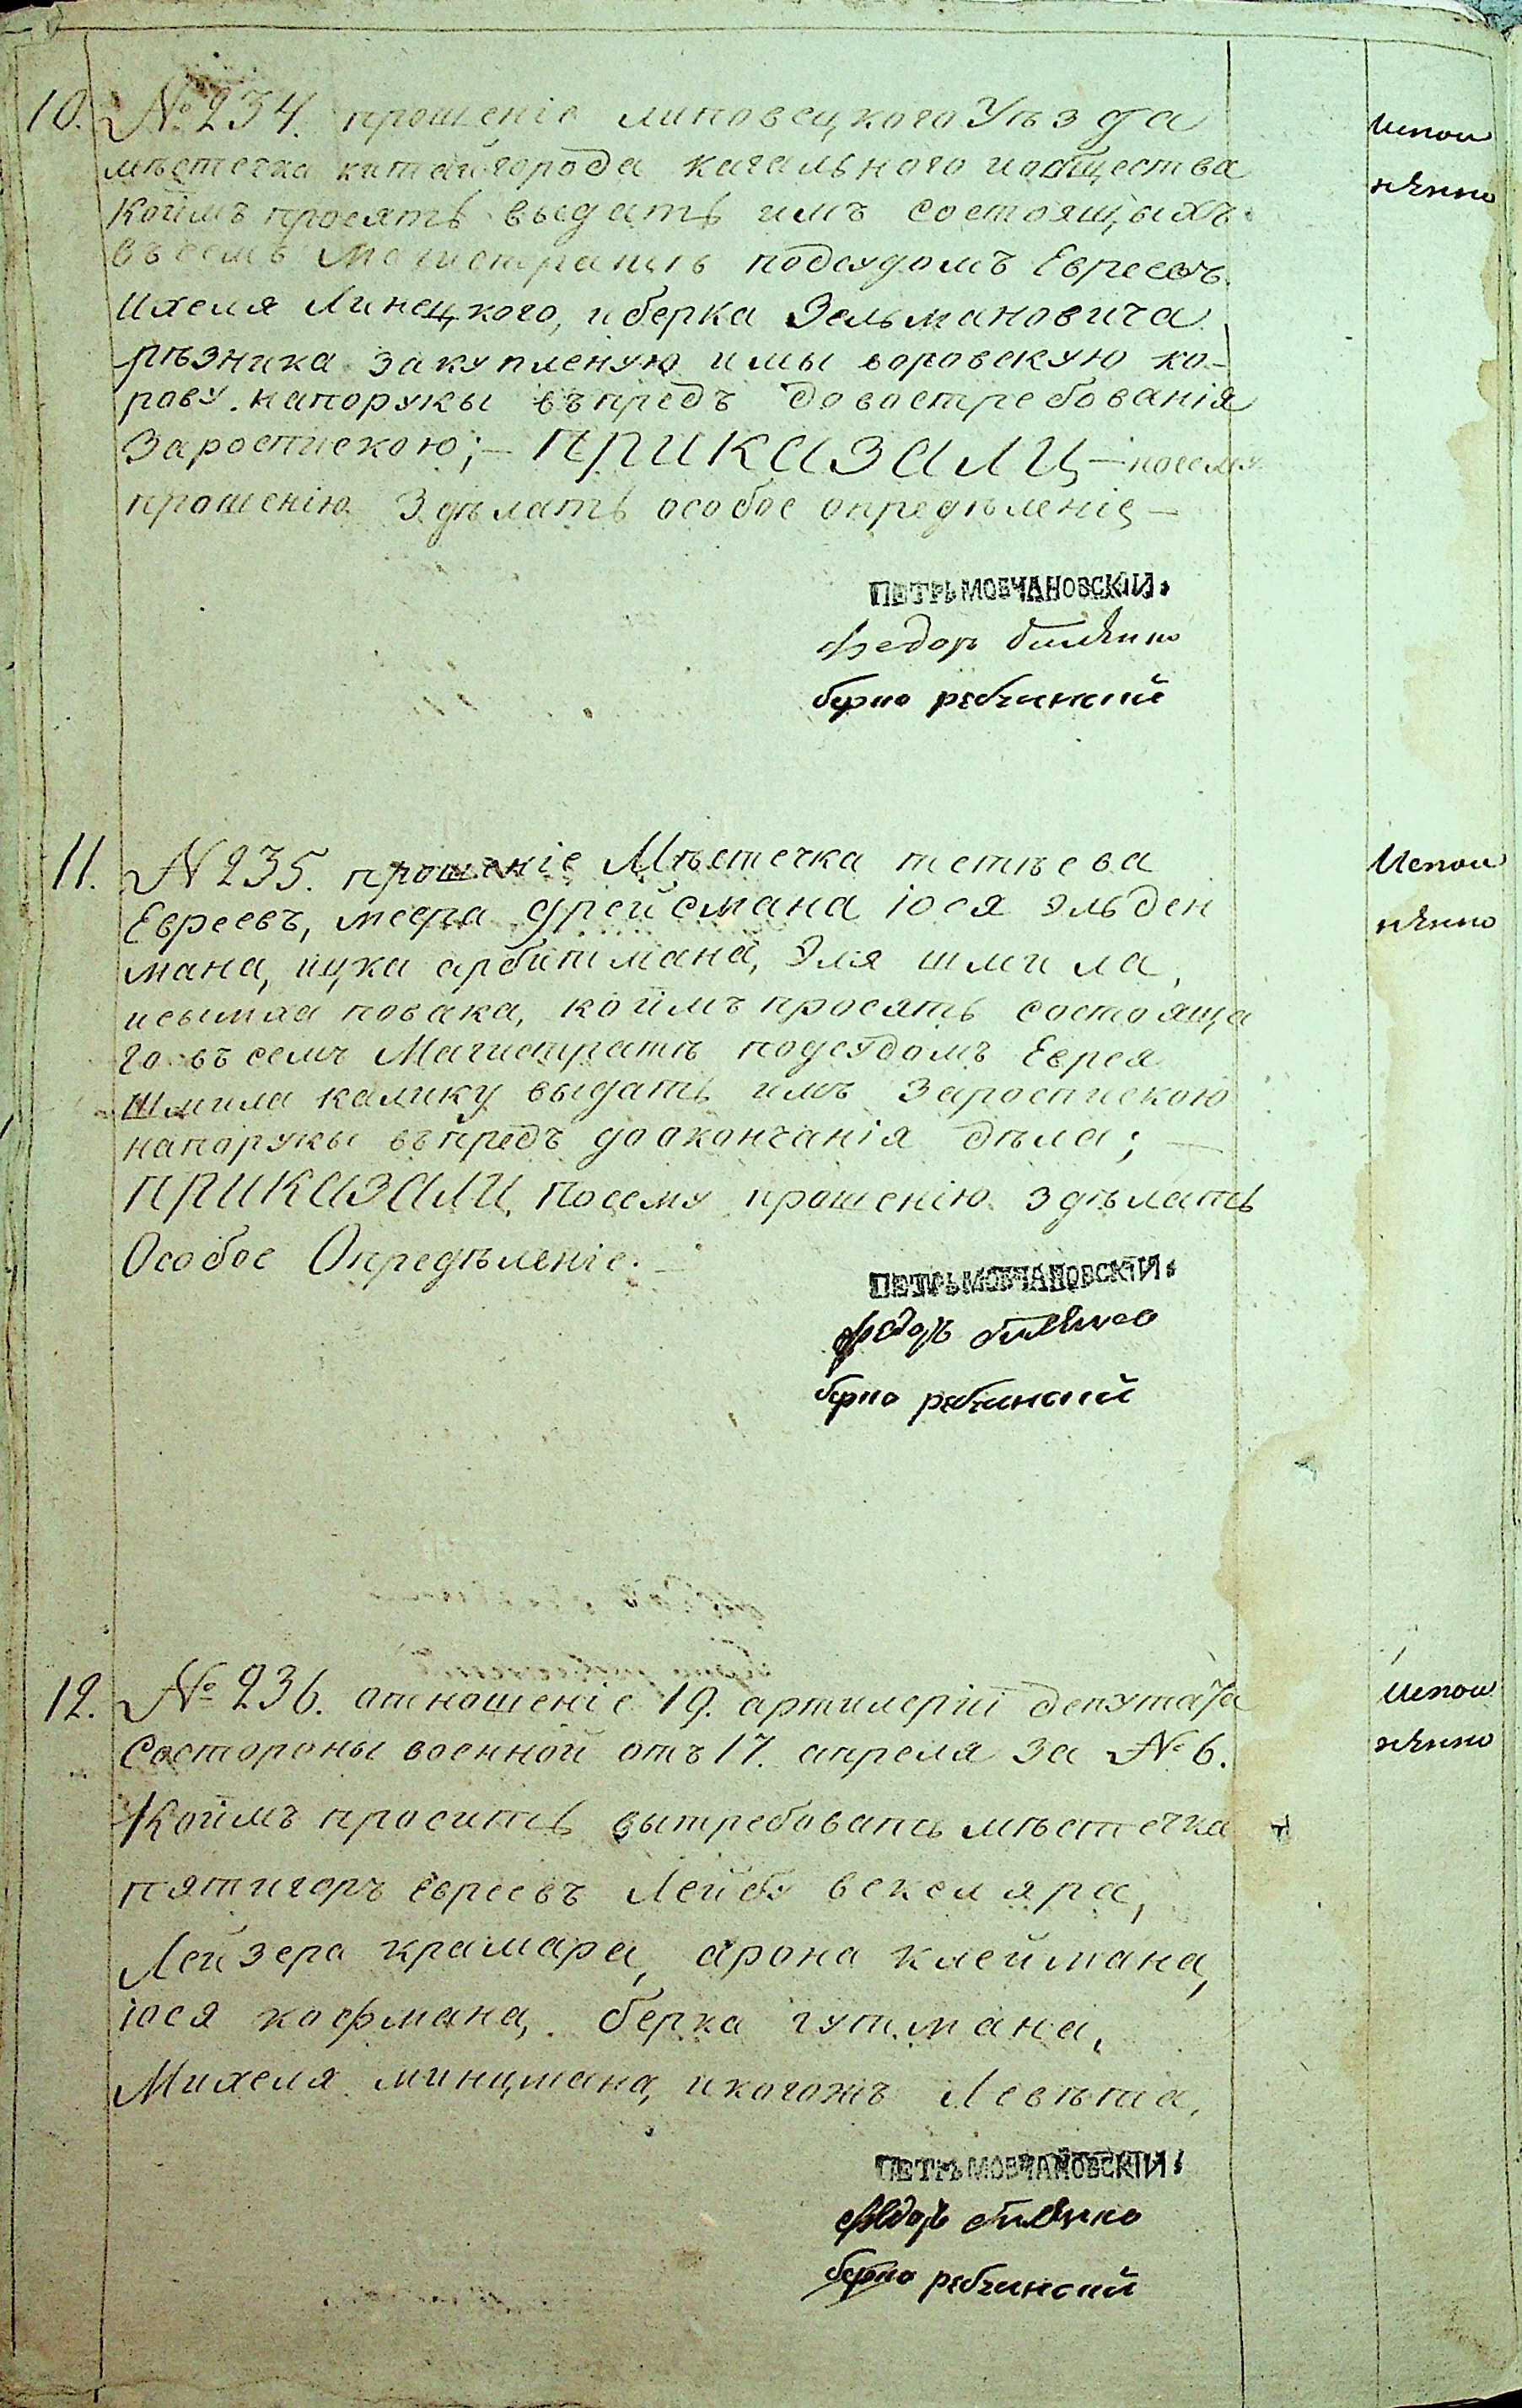 10. № 234. прошеніе липовецкого Уѣзда
мѣстечка китайгорода кагального иобщества
коимъ просятъ выдать имъ состоящыхъ
въ семъ Магистратѣ подсудомъ Евреевъ
Ихеля Линецкого, и берка Зельмановича
рѣзника закупленую имы воровскую ко-
рову. напоруки въпредъ довостребованія
Заростискою; — приказали — посему
прошенію Здѣлать особое опредѣленіе —
Испол
нѣнно
ПЕТРЬ МОВЧАНОВСКІИ.
федоръ
берко рабчинский
11. № 235. прошеніе Мѣстечка тетѣева
Евреевъ, меера фрейсмана Іося эльден
мана, ицка арбитмана, Эля шмила,
исымха повака, коимъ просятъ состояща
го въ семъ Магистратѣ подсудомъ Еврея
Шмила калику выдать имъ Заросписко​ю
напоруки въпредъ доокончанія дѣла; —
приказали, Посему прошенію здѣлать
Особое Опредѣленіе. —
Испол
нѣнно
ПЕТРЬ МОВЧАНОВСКІИ.
федоръ
берко рабчинский
12. № 236. отношеніе 19. артилеріи депутата
Состороны военной отъ 17. апреля за № 6.
Коимъ проситъ вытребовать мѣстечка
пятигоръ евреевъ Лейбу векселяра,
Лейзера крамара, арона клеймана,
іося кофмана, берка гутмана,
Михеля минцмана, икогожъ Левѣта,
Испол
нѣнно
ПЕТРЬ МОВЧАНОВСКІИ.
федоръ
берко рабчинский